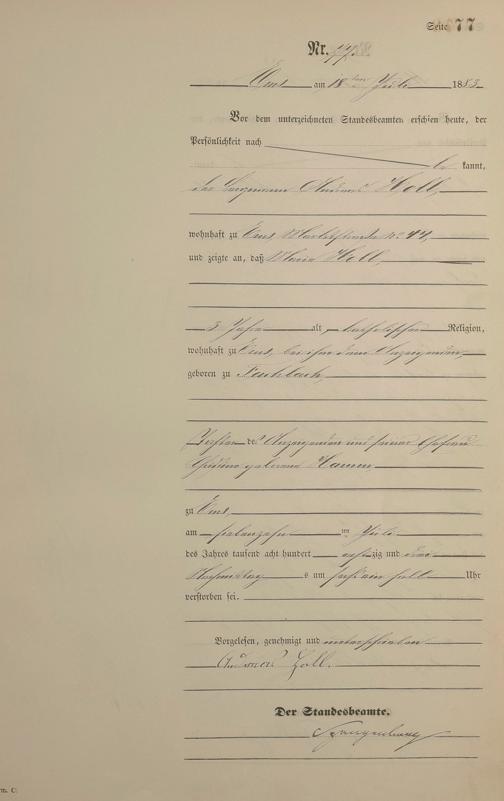 Seite 77
Nr. 77.
Ems am 18ten Juli 1883
Vor dem unterzeichneten Standesbeamten erschien heute, der
Persönlichkeit nach
be kannt,
der Bergmann Andreas Holl,
wohnhaft zu Ems, Marktstraße No 44,
und zeigte an, daß Maria Holl,
3 Jahre alt, katholischer Religion,
wohnhaft zu Ems, bei ihm dem Anzeigenden,
geboren zu Fachbach,
Tochter des Anzeigenden und seiner Ehefrau
geborene
zu Ems,
am siebenzehnten Juli
des Jahres tausend acht hundert achtzig und drei
Nachmittags um halb Uhr
verstorben sei.
Vorgelesen, genehmigt und unterschrieben
Andreas Holl.
Der Standesbeamte.
m. C.